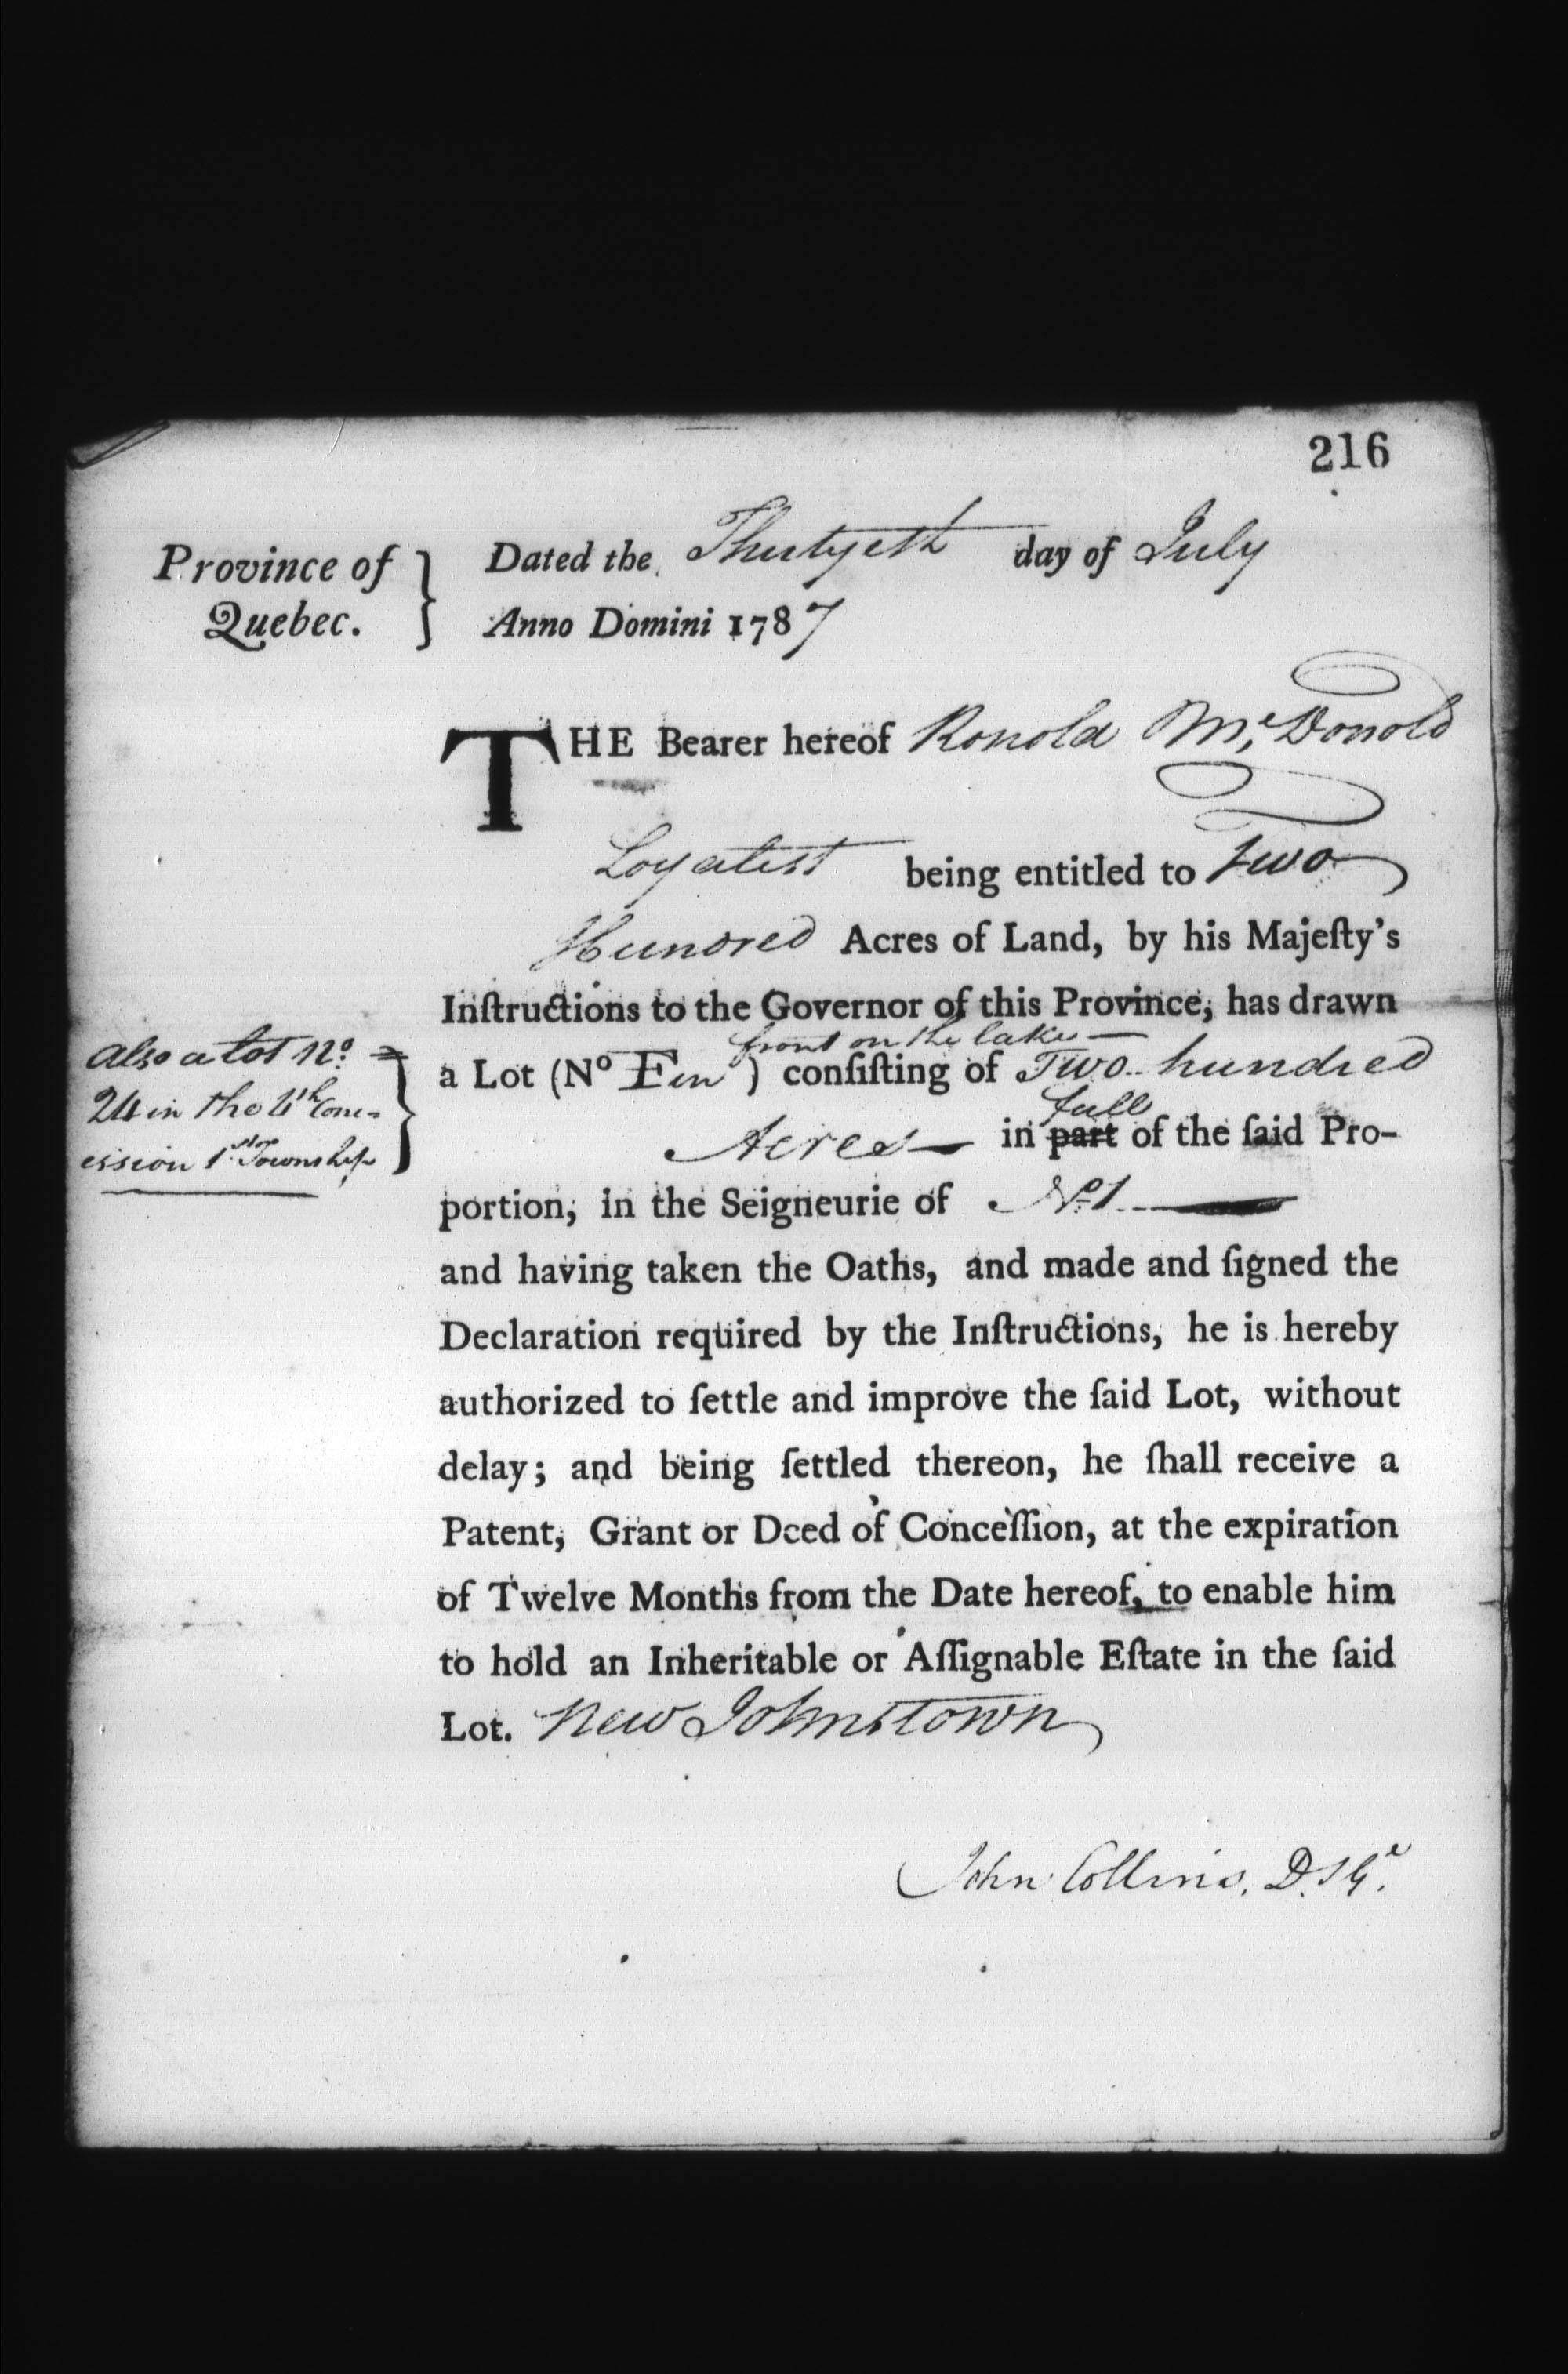 216
Province of
Quebec.
Dated the Thirtyeth day of July
Anno Domini 1787
THE Bearer hereof Ronold McDonold
Loyalist being entitled to Two
Hundred Acres of Land, by his Majeſty's
Inſtructions to the Governor of this Province, has drawn
front on the lake —
a Lot (No ) conſiſting of Two hundred
full
Acres — in part of the ſaid Pro-
portion, in the Seigneurie of No. 1
and having taken the Oaths, and made and ſigned the
Declaration required by the Inſtructions, he is hereby
authorized to ſettle and improve the ſaid Lot, without
delay; and being ſettled thereon, he ſhall receive a
Patent, Grant or Deed of Conceſſion, at the expiration
of Twelve Months from the Date hereof, to enable him
to hold an Inheritable or Aſſignable Eſtate in the ſaid
Lot. New Johnstown
Also a lot No. =
24 in the 4th Conc=
ession 1st Township
John Collins, D.S.G.